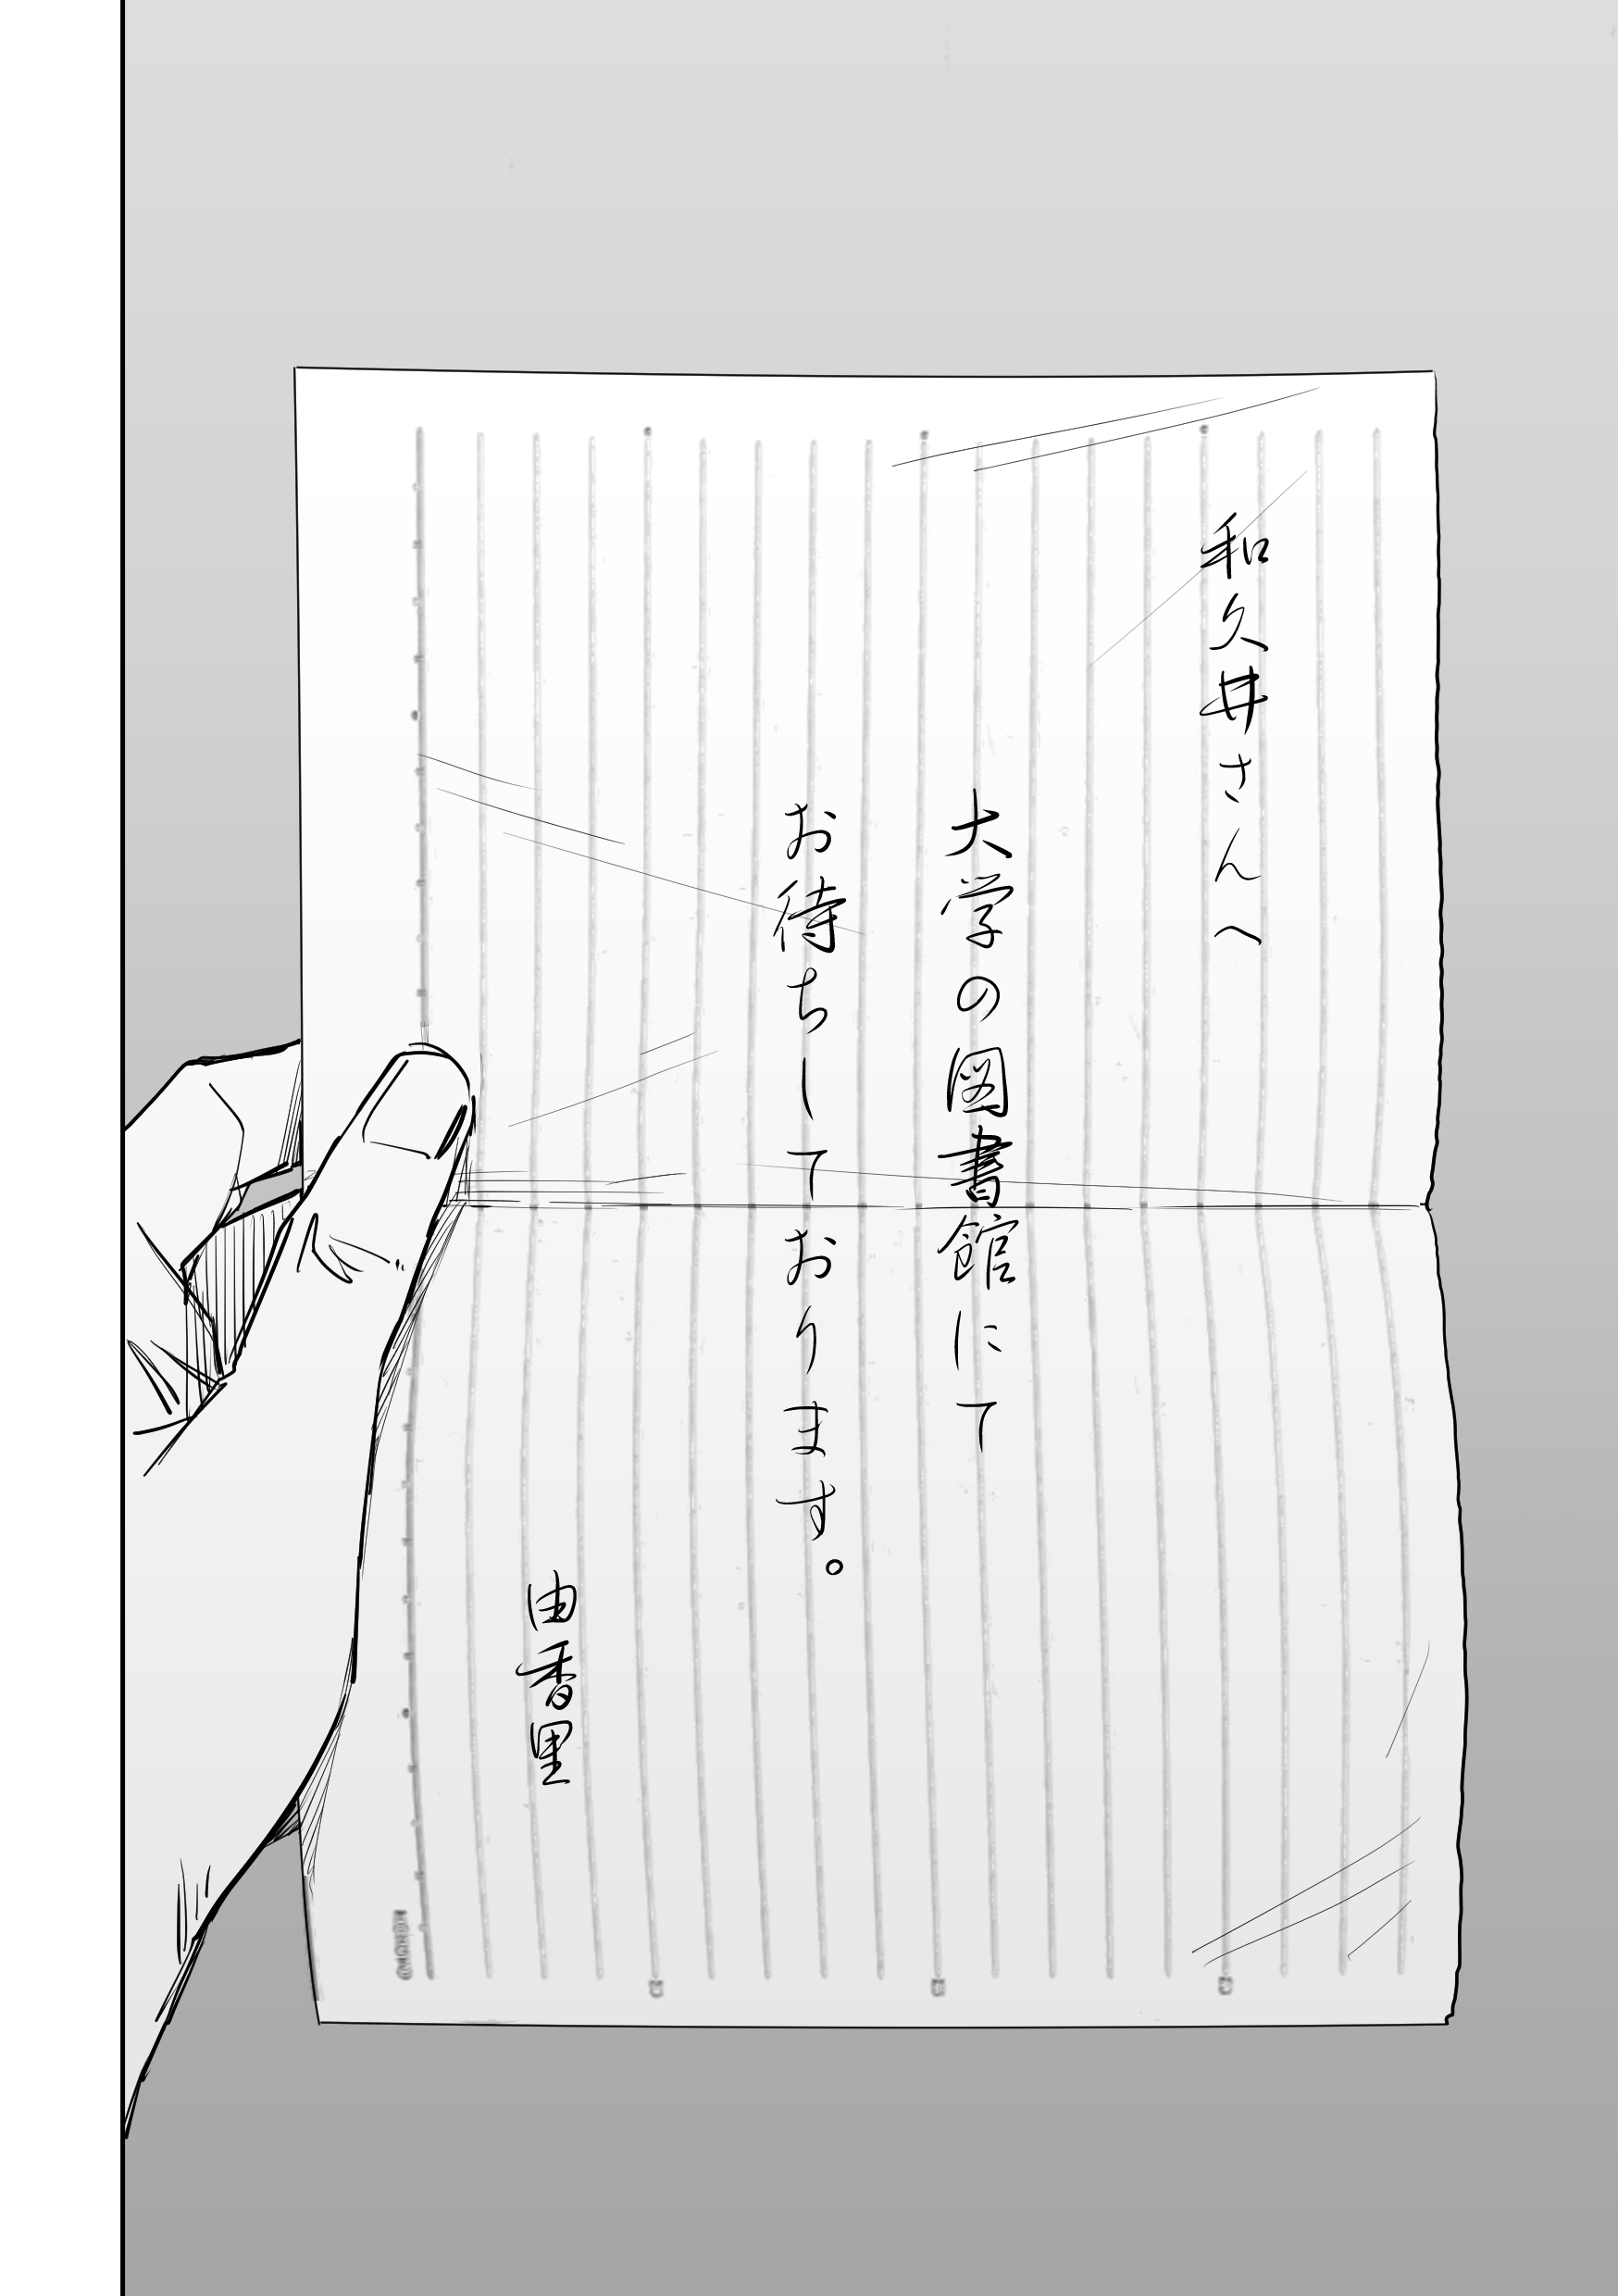 和久井さんへ
大学の図書館にて
お待ちしております。
由香里